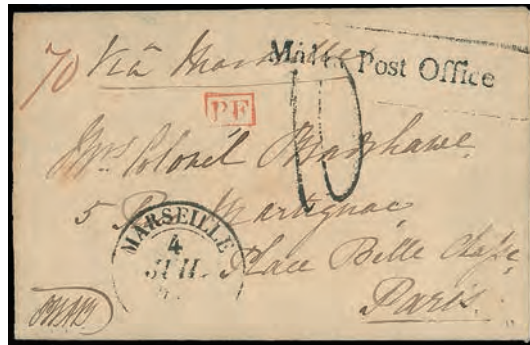 70 Viâ Marseille
Malta Post Office
P.F.
10
Mrs. Colonel Bagshawe
5 Rue Martignac
MARSEILLE
4
JUIL
Place Belle Chasse
Paris.